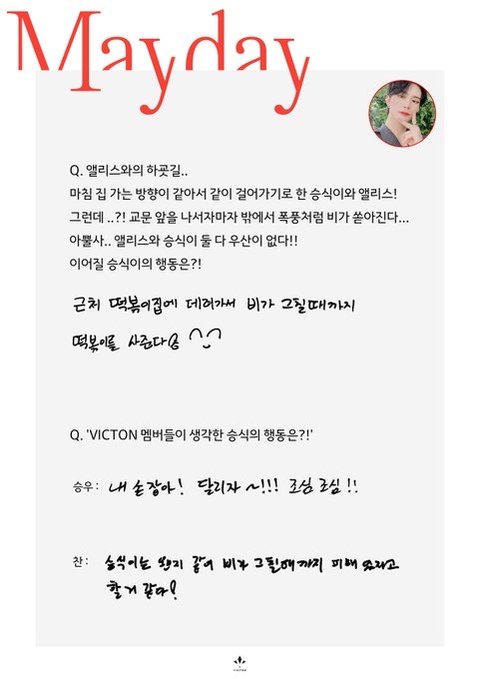 Mayday
Q. 앨리스와의 하굣길..
마침 집 가는 방향이 같아서 같이 걸어가기로 한 승식이와 앨리스!
그런데 ..?! 교문 앞을 나서자마자 밖에서 폭풍처럼 비가 쏟아진다...
아뿔사.. 앨리스와 승식이 둘 다 우산이 없다!!
이어질 승식이의 행동은?!
근처 떡볶이집에 데려가서 비가 그칠때까지
떡볶이를 사준다
Q. 'VICTON 멤버들이 생각한 승식의 행동은?!'
승우 : 내 손 잡아! 달리자 ~!!! 조심 조심 !!
찬 : 승식이는 왠지 같이 비가 그칠때까지 피해 있자고
할 거 같다!
VICTON